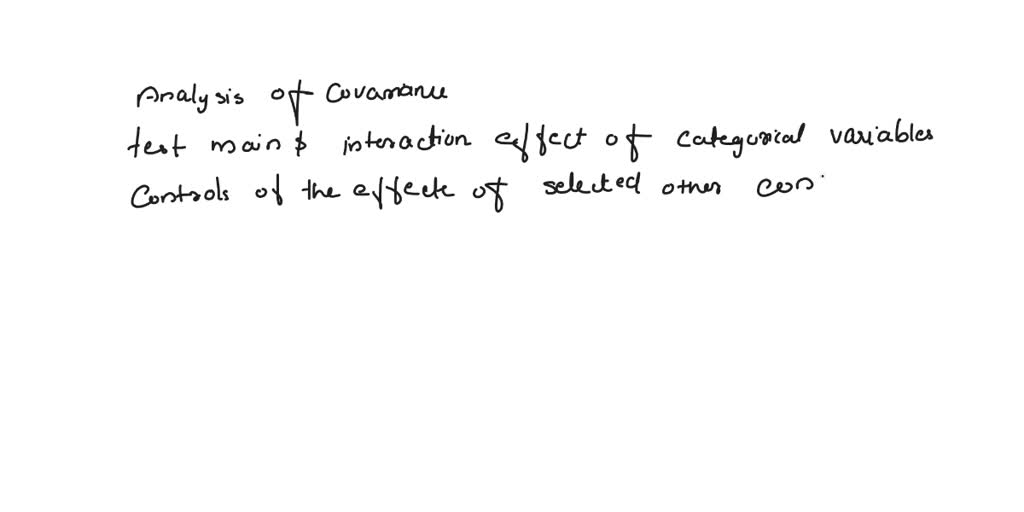 Analysis of Covariance
test main & interaction effect of categorical variables
Controls of the effects of selected other con